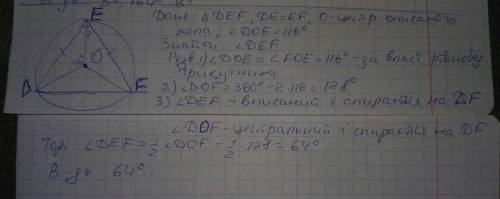 E
O
D
F
Дано: △DEF, DE=EF, O-центр описаного
кола, ∠DOE=116°
Знайти ∠DEF
Розв. 1) ∠DOE=∠FOE=116° -за власт. рівнобер.
Трикутника
2) ∠DOF=360°-2·116=128°
3) ∠DEF-вписаний і спирається на DF
∠DOF-центральний і спирається на DF
Тоді ∠DEF=1/2 ∠DOF=1/2·128=64°
В-дь 64°.